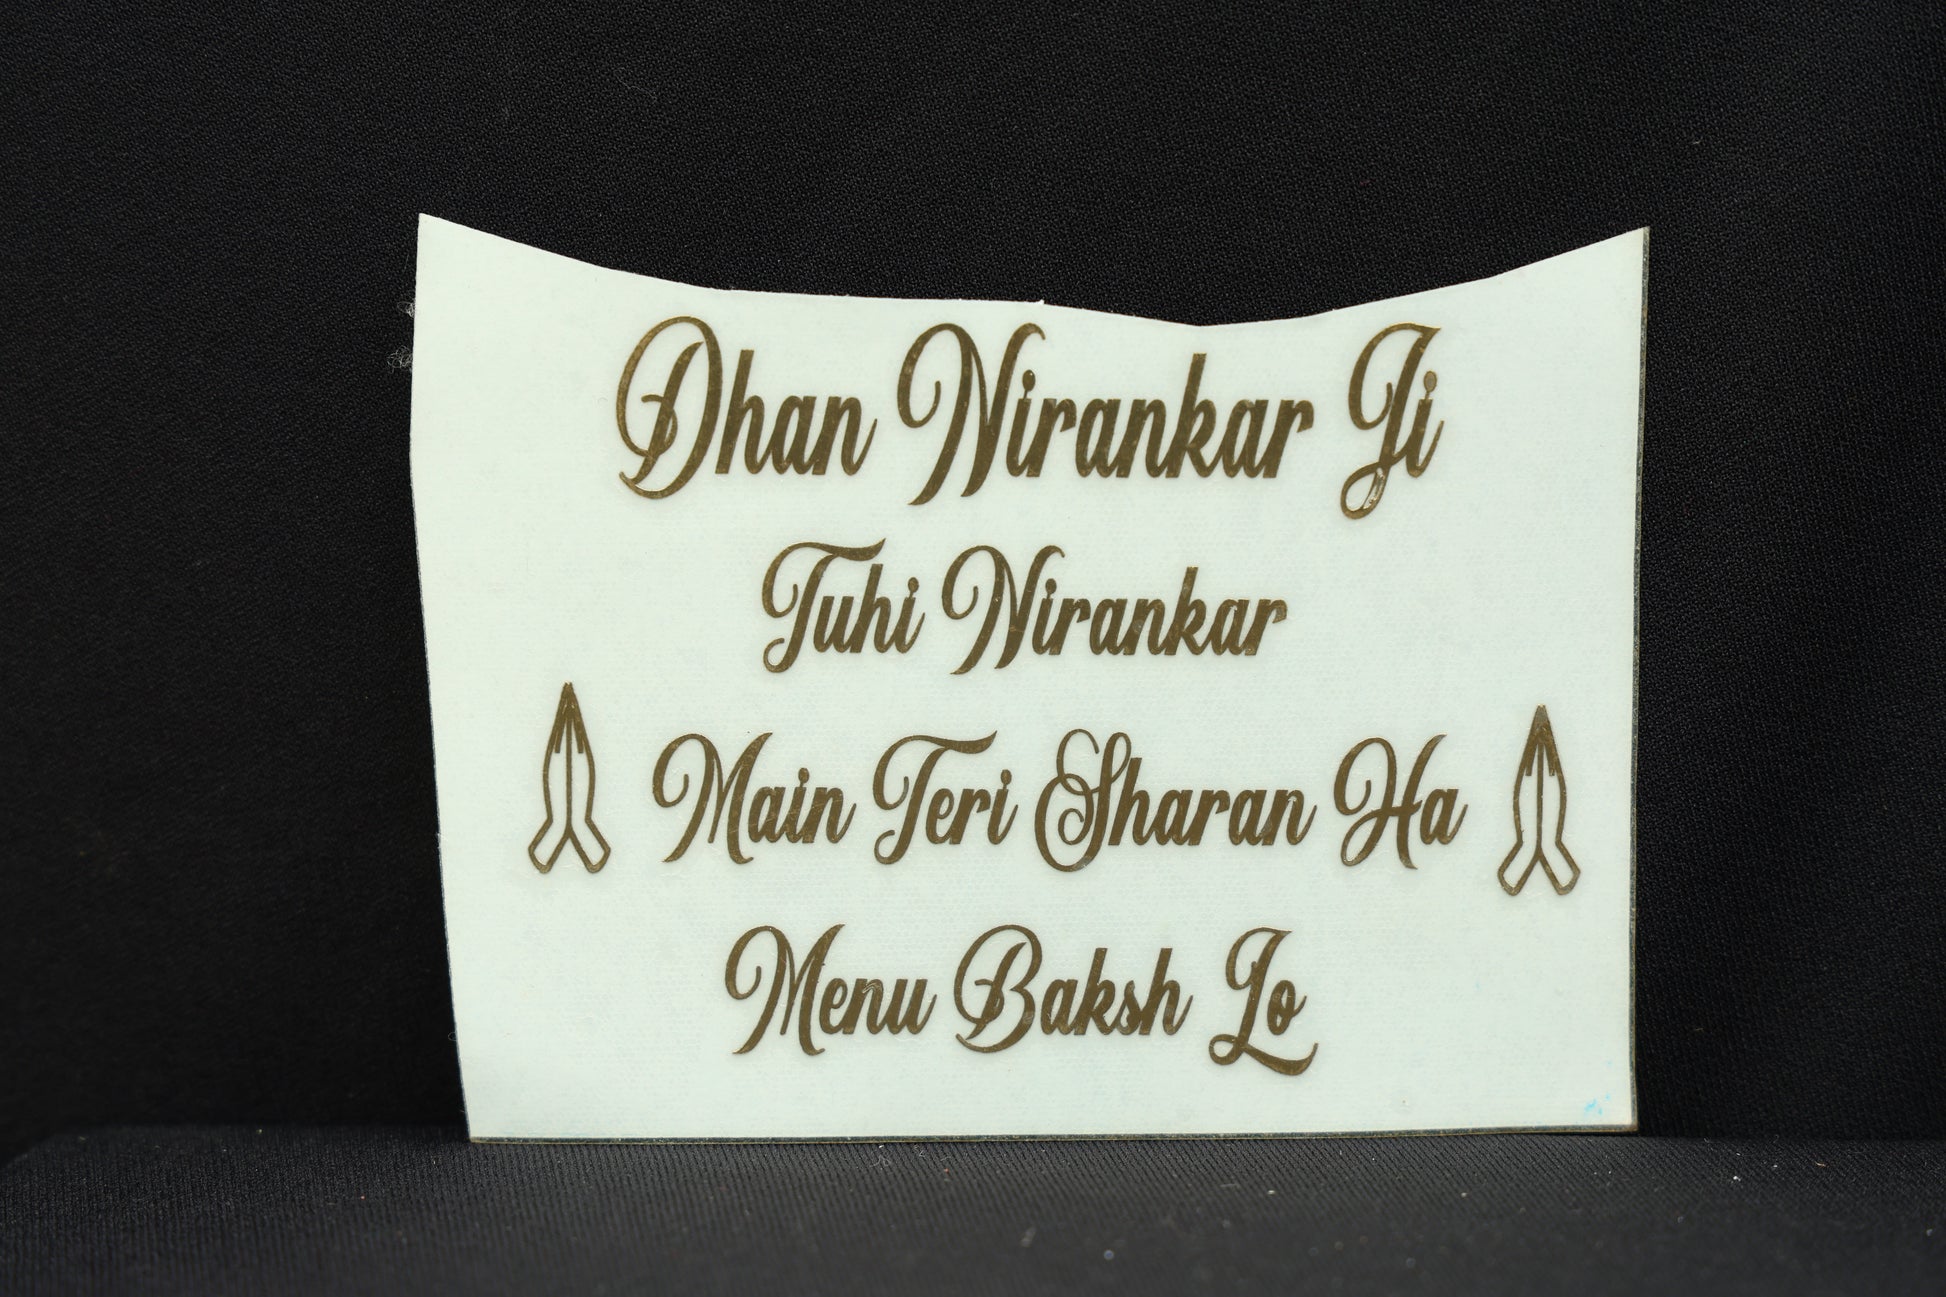 Dhan Nirankar Ji
Tuhi Nirankar
Main Teri Sharan Ha
Menu Baksh Lo